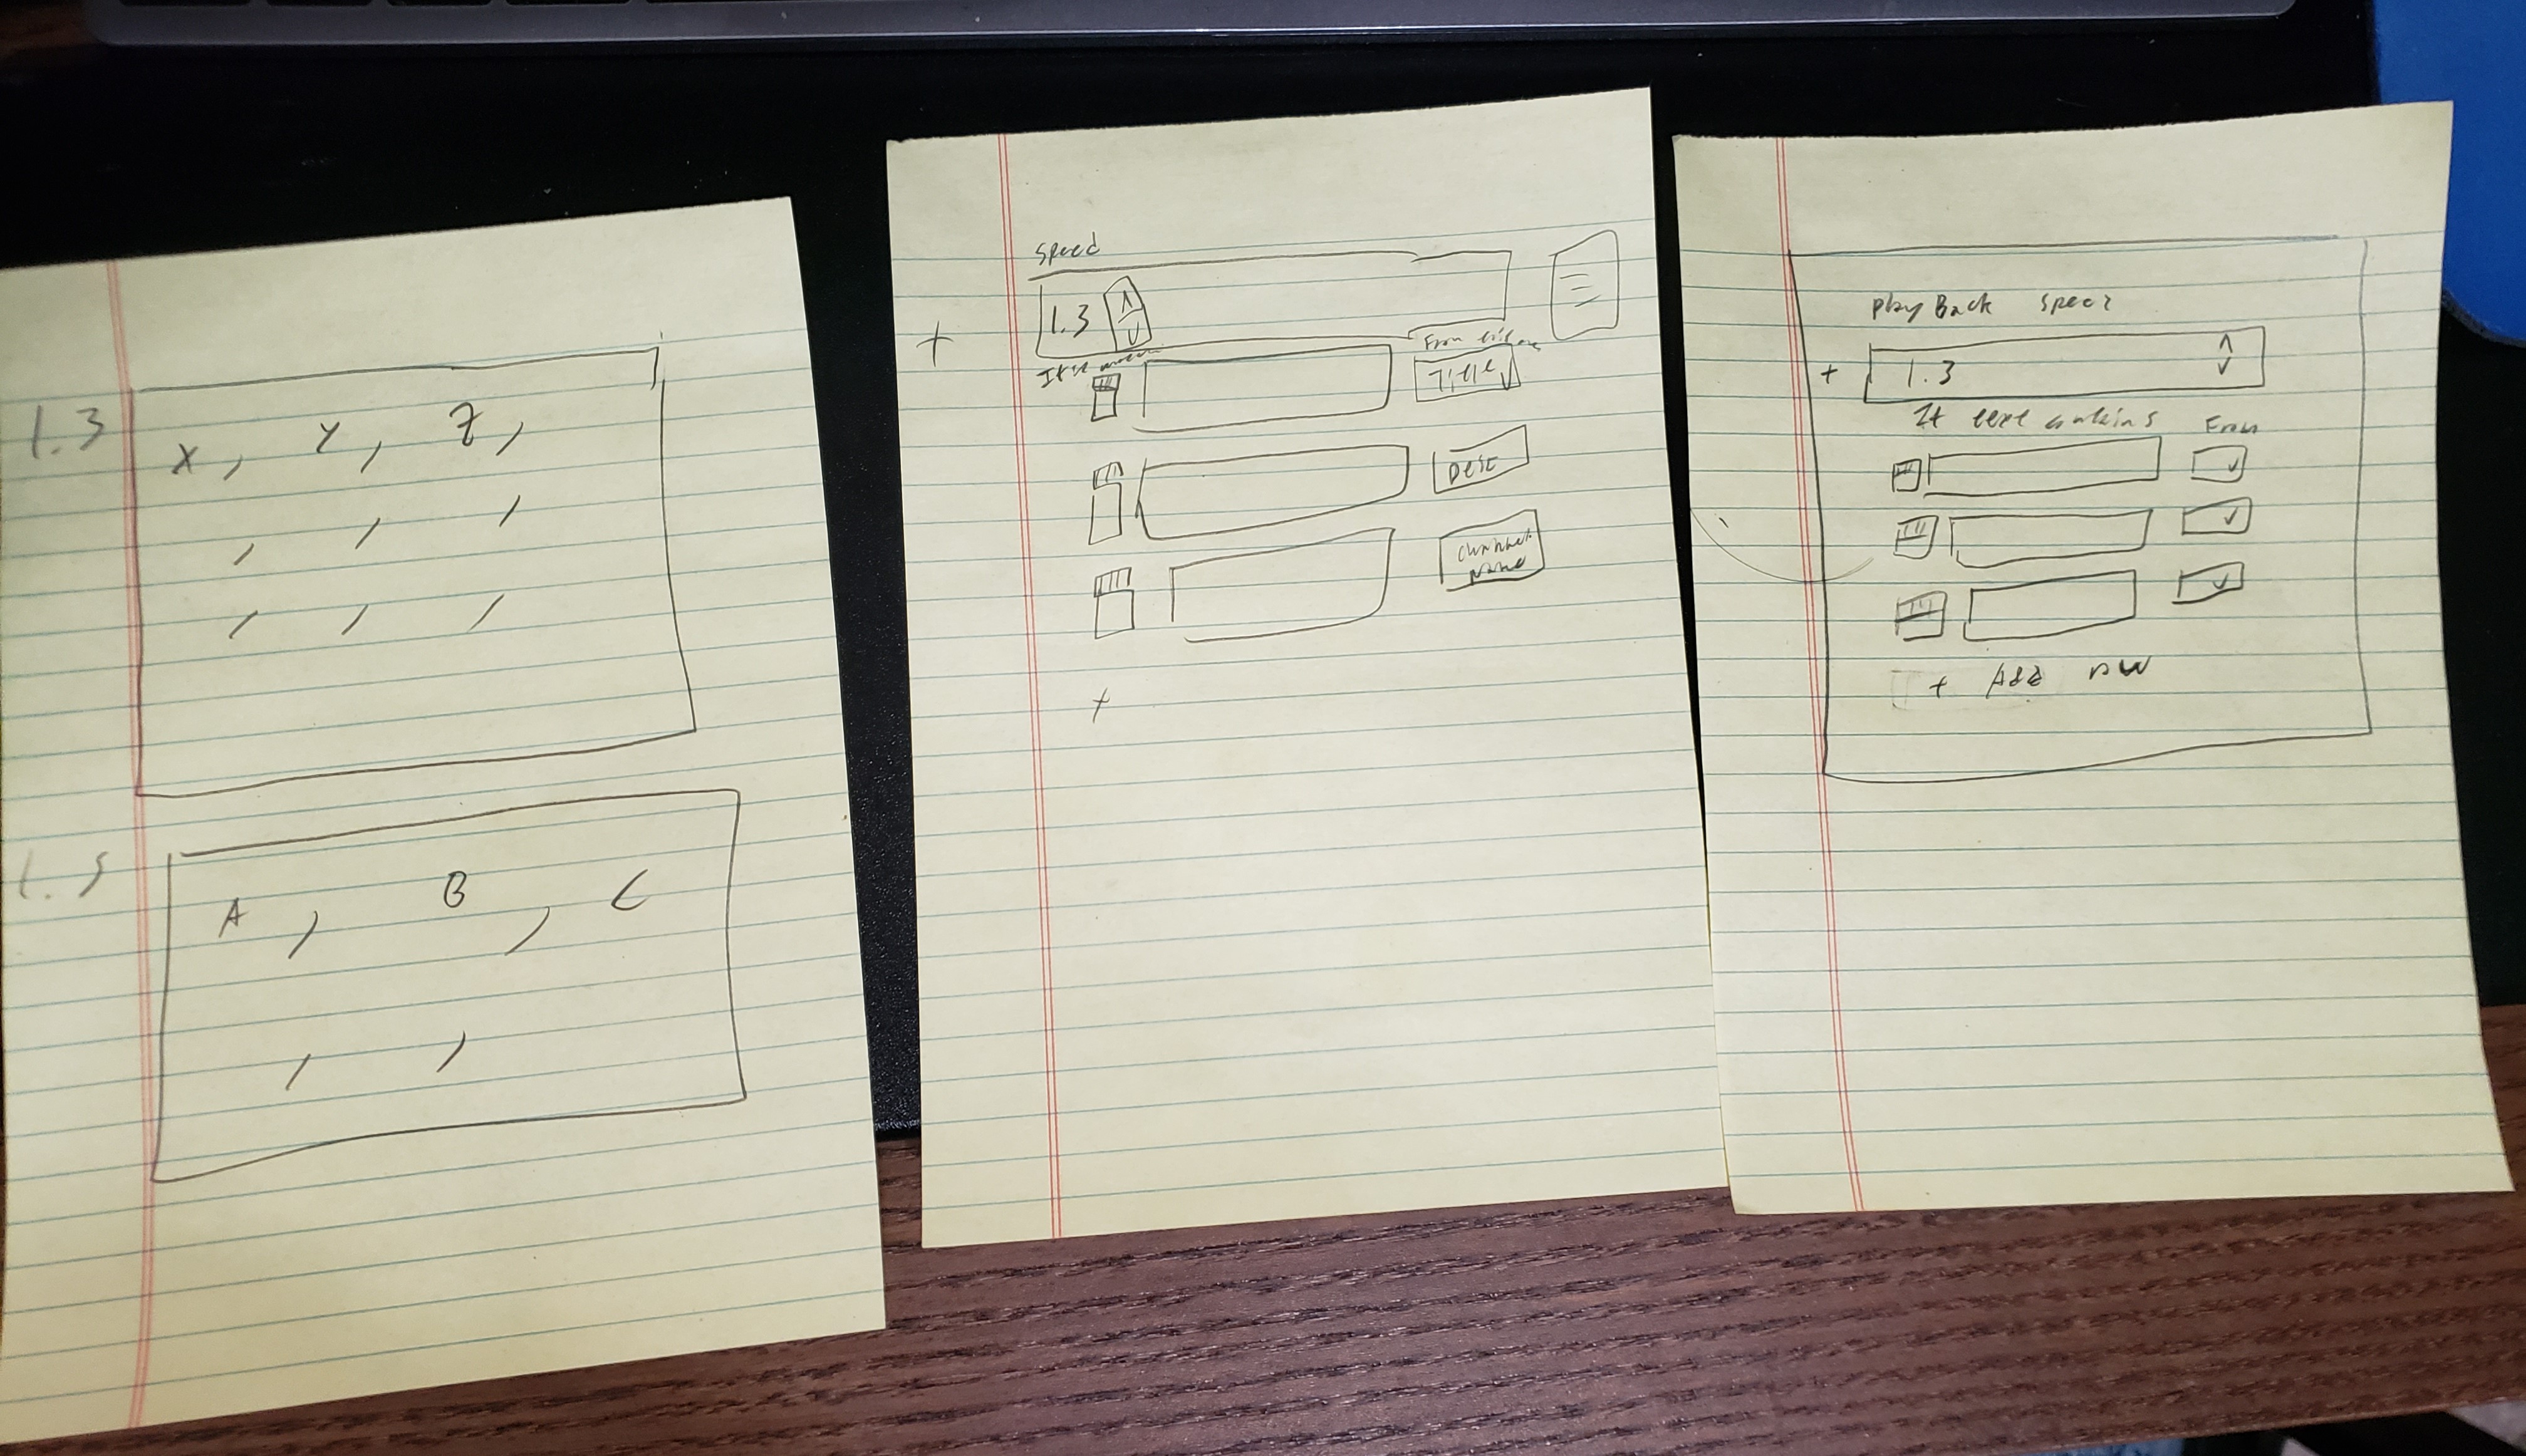 1.3
X, Y, Z,
, , ,
, , ,
1.5
A, B, C
, ,
Speed
1.3
+
From
Title
Desc
channel
name
+
Play Back Speed
+ 1.3
If text contains From
+ Add new